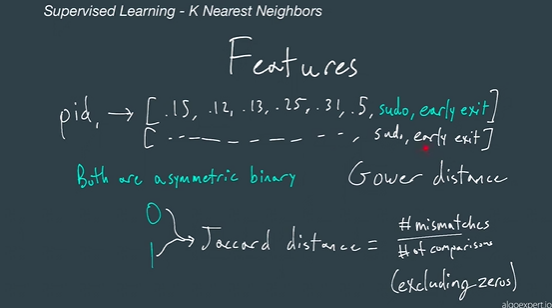 Supervised Learning - K Nearest Neighbors
Features
pid₁ → [.15, .12, .13, .25, .31, .5, sudo, early exit]
[ - - - - - - , sudo, early exit]
Both are asymmetric binary
Gower distance
0
1
Jaccard distance = # mismatches / # of comparisons
(excluding zeros)
algoexpert.io